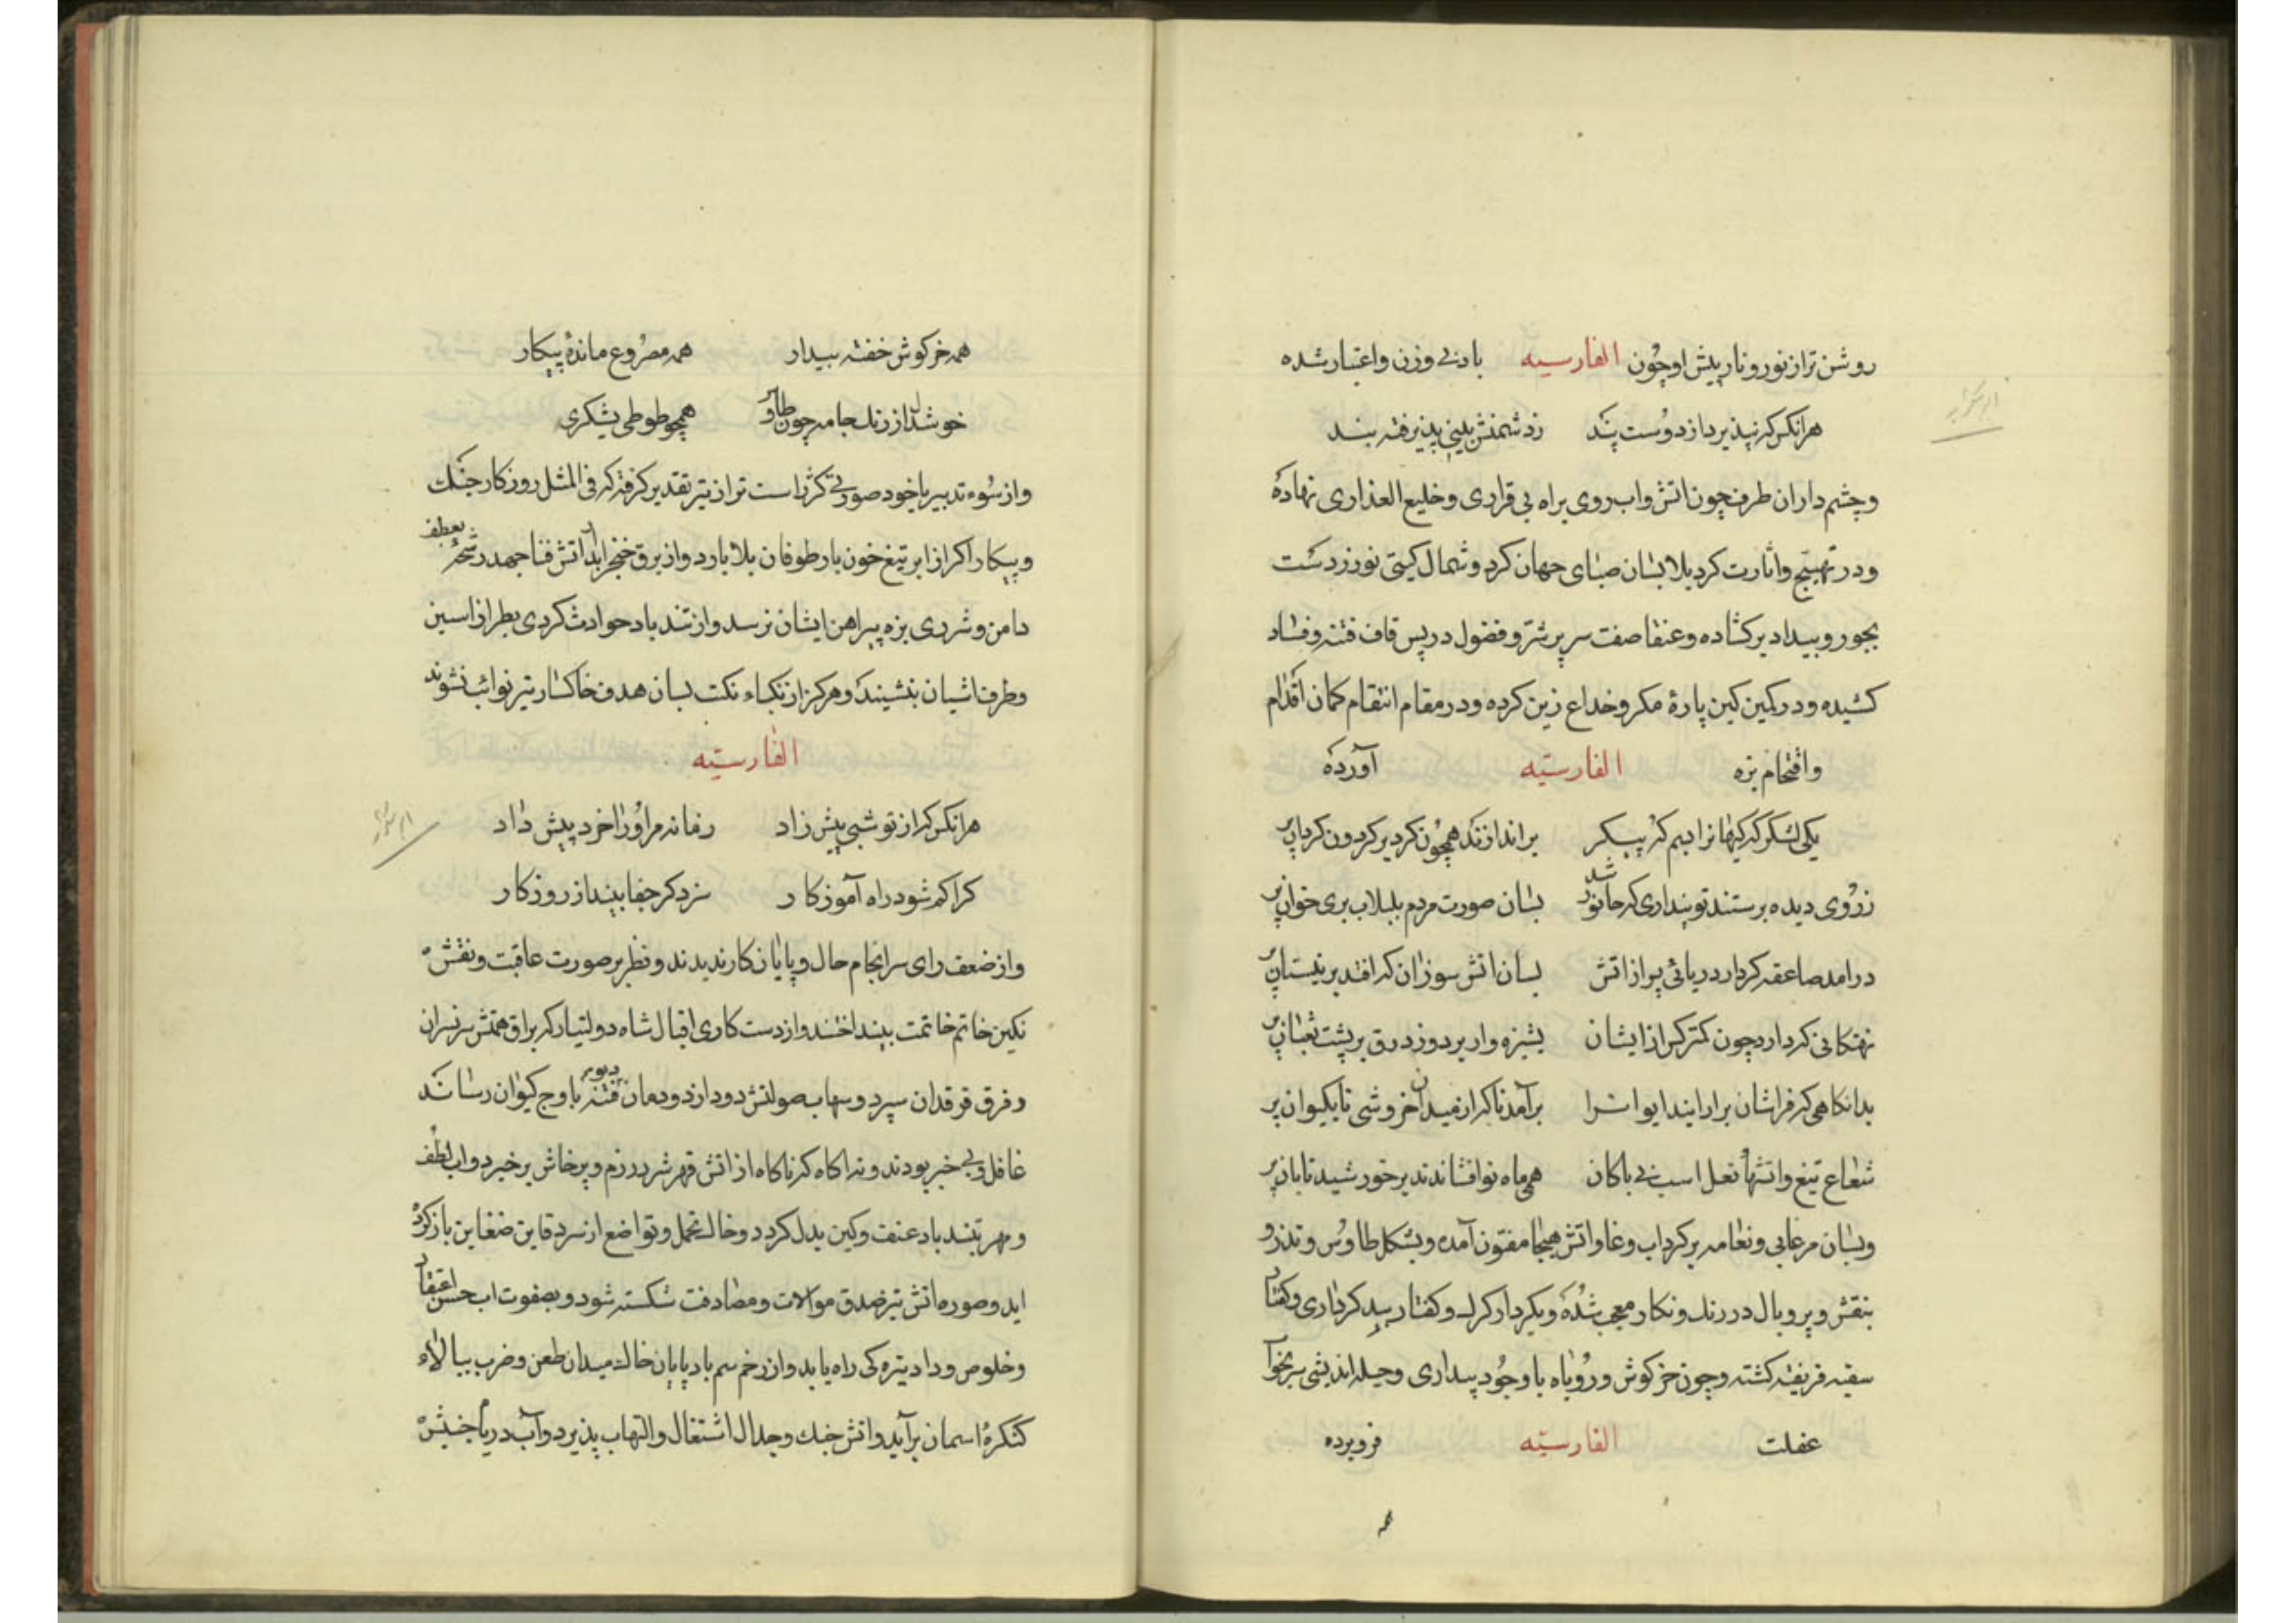 روشن تر از نور و نار پیش او چون الفارسیه بادی وزن و اعتبار شده
هرانکس که نپذیرد از دوست پند ز دشمنش بینی پذیرفته بند
و چشم داران طرف چون اتش و اب روی براه بی قراری و خلیع العذاری نهاده
و در تهییج و اثارت کرد بلا بسان صبای جهان کرد و شمال کیتی نورد دست
بجور و بیداد برکشاده و عنقا صفت سر پر شر و فضول در پس قاف فتنه و فساد
کشیده و در کمین کین بارهٔ مکر و خداع زین کرده و در مقام انتقام کمان اقدام
و اقتحام بزه الفارسیه آورده
یکی لشکر که کیهانرا بهم بر اندازند همچون کرد بر کردون کردان بر
ز روی دیده برستند تو پنداری که جانور شد بسان صورت مردم بلبلاب بری خوان بر
درامد صاعقه کردار دریائی پر از اتش بسان اتش سوزان که افتد بر نیستان بر
نهنکانی که دارد چون کمتر کس از ایشان پشیزه وار بر دوزد درق بر پشت ثعبان بر
بدانکاهی که فراشان برارایند ایوانرا برآمد ناکه از میدان خروشی تا بکیوان بر
شعاع تیغ و اتشها نعل اسب بی باکان همی ماه نو افشاندند بر خورشید تابان بر
و بسان مرغابی و نعامه بر کرداب وغا و اتش هیجا مفتون آمده و بشکل طاوس و تذرو
بنقش و پر و بال در رنک و نکار معجب شده و بکردار کرک و کفتار بد کرداری و کفتار
سفیه فریفته کشته و چون خرکوش و روباه با وجود بیداری و حیله اندیشی سر بخواب
غفلت الفارسیه فرو برده
همه
همه خرکوش خفته بیدار همه مصروع ماندهٔ پیکار
خوشدل از رنک جامه چون طاوس همچو طوطی بشکری
و از سوء تدبیر با خود صورتی کژ راست تر از تیر تقدیر کرفته که فی المثل روز کار جنک
و پیکار اکر از ابر تیغ خون بار طوفان بلا بارد و از برق خنجر ابدار اتش فنا جهد رشحهٔ بعطف
دامن و شرری بزه پیراهن ایشان نرسد و از تند باد حوادث کردی بطراز استین
و طرف اشیان ننشیند و هرکز از نکباء نکبت بسان هدف خاکسار تیر نوائب نشوند
الفارسیه
هرانکس که از تو شبی پیش زاد زمانه مر او را خرد پیش داد
کرا کم شود راه آموزکار سزد کر جفا بیند از روزکار
و از ضعف رای سرانجام حال و پایان کار ندیدند و نظر بر صورت عاقبت و نقش
نکین خاتم خاتمت بینداختند و از دست کاری اقبال شاه دولتیار که براق همتش سر نسران
و فرق فرقدان سپرد و سهاب صولتش دود از دودمان فتنه باوج کیوان رساند
غافل و بی خبر بودند و نه اکاه که ناکاه از اتش قهر شرر رزم و پرخاش برخیزد و اب لطف
و مهر بتند باد عنف و کین بدل کردد و خاک تحمل و تواضع از سر دفاین ضغاین باز کرده
اید و صوره اتش تیز صدق موالات و مصادقت شکسته شود و بصفوت اب حسن اعتقاد
و خلوص وداد تیره کی راه یابد و از زخم سم باد پایان خاک میدان طعن و ضرب ببالاء
کنکرهٔ اسمان برآید و اتش جنک و جدال اشتعال و التهاب پذیرد و آب دریا